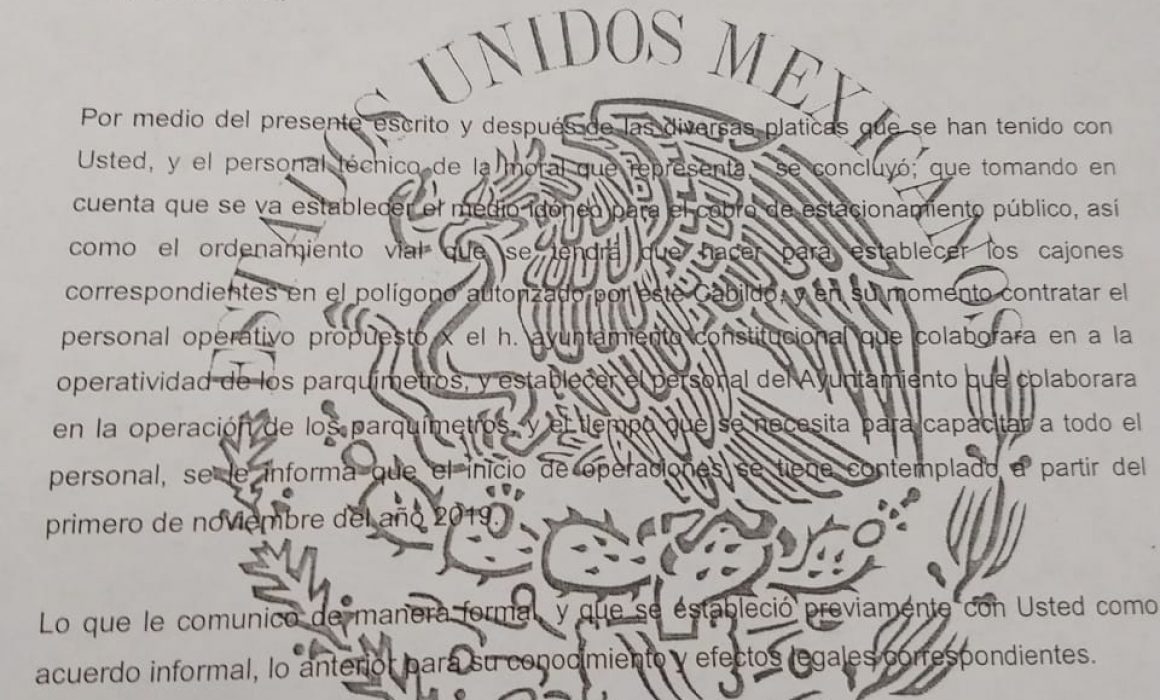 ESTADOS UNIDOS MEXICANOS
Por medio del presente escrito y después de las diversas platicas que se han tenido con
Usted, y el personal técnico de la moral que representa, se concluyó; que tomando en
cuenta que se va establecer el medio idóneo para el cobro de estacionamiento público, así
como el ordenamiento vial que se tendrá que hacer para establecer los cajones
correspondientes en el polígono autorizado por este Cabildo, y en su momento contratar el
personal operativo propuesto x el h. ayuntamiento constitucional que colaborara en a la
operatividad de los parquímetros, y establecer el personal del Ayuntamiento que colaborara
en la operación de los parquímetros, y el tiempo que se necesita para capacitar a todo el
personal, se le informa que el inicio de operaciones se tiene contemplado a partir del
primero de noviembre del año 2019.
Lo que le comunico de manera formal, y que se estableció previamente con Usted como
acuerdo informal, lo anterior para su conocimiento y efectos legales correspondientes.